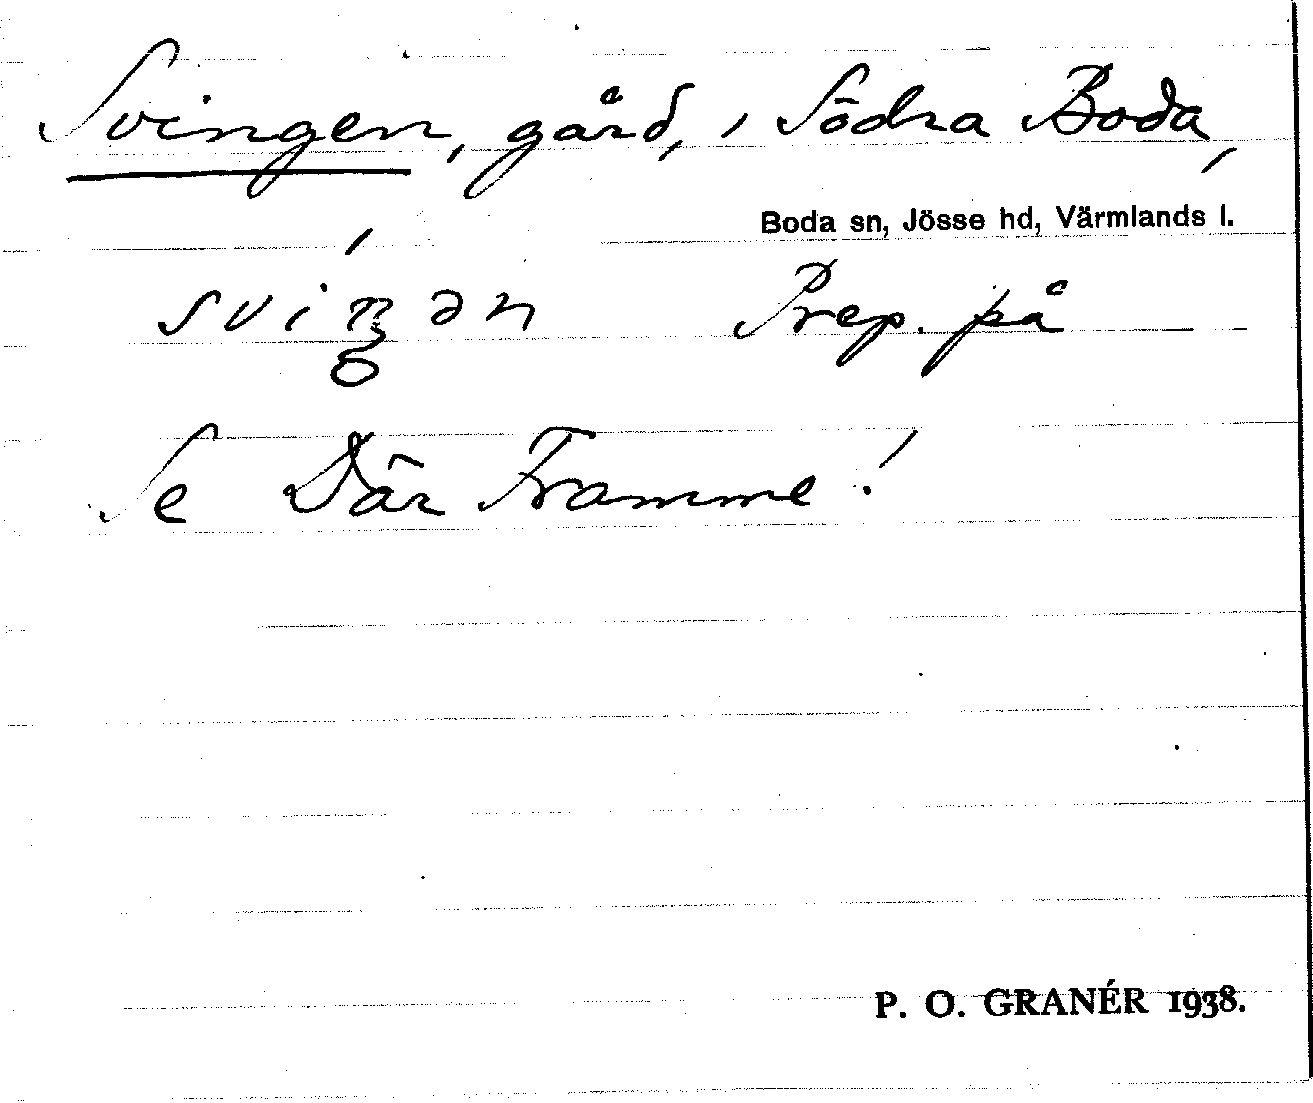 Svingen, gård, i Södra Boda,
Boda sn, Jösse hd, Värmlands l.
sviŋən Prep. på
Se Där Framme!
P. O. GRANÉR 1938.